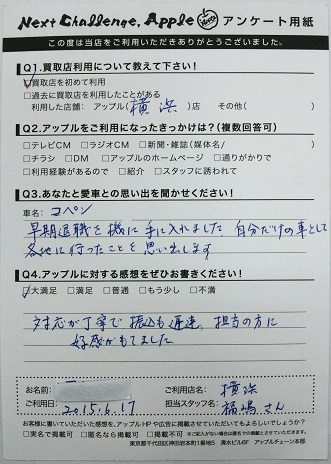 Next Challenge, Apple Apple アンケート用紙
この度は当店をご利用いただきありがとうございました。
Q1.買取店利用について教えて下さい!
☑買取店を初めて利用
□過去に買取店を利用したことがある
利用した店舗: アップル(横浜)店 その他( )
Q2.アップルをご利用になったきっかけは?(複数回答可)
□テレビCM □ラジオCM □新聞・雑誌(媒体名/ )
□チラシ □DM □アップルのホームページ □通りがかりで
□利用経験があるので □紹介 □スタッフに誘われて
Q3.あなたと愛車との思い出を聞かせください!
車名: コペン
早期退職を機に手に入れました、自分だけの車として
各地に行ったことを思い出します
Q4.アップルに対する感想をぜひお書きください!
☑大満足 □満足 □普通 □もう少し □不満
対応が丁寧で振込も迅速、担当の方に
好感がもてました
お名前:
ご利用店名: 横浜
ご利用日: 2015.6.17
担当スタッフ名: 福嶋さん
お客様に書いていただいた感想を、アップルHPや広告に掲載させていただいてもよろしいでしょうか?
□実名で掲載可 □匿名なら掲載可 □掲載不可 ※ご記入がない場合は匿名での掲載とさせていただきます。
東京都千代田区神田岩本町1番地5 清水ビル6F アップルチェーン本部